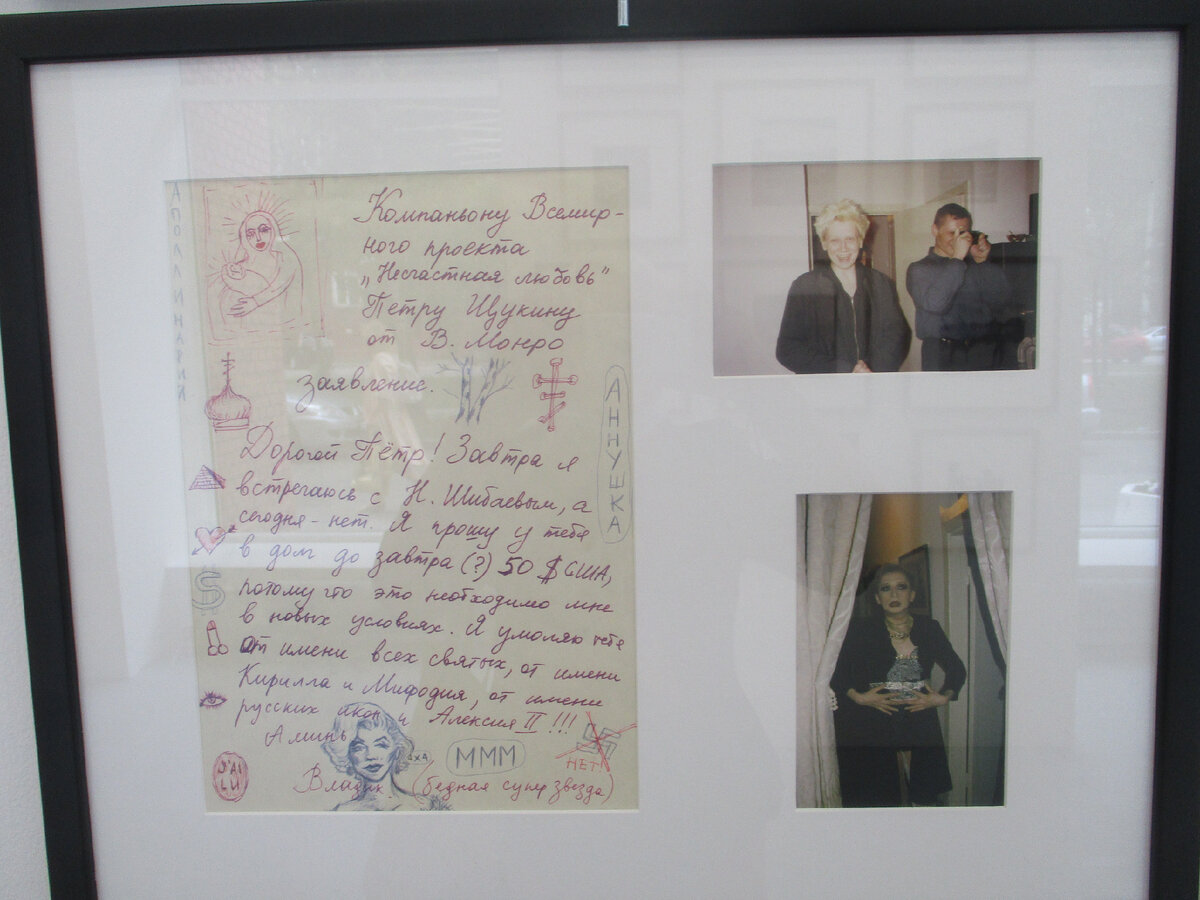 АПОЛЛИНАРИЙ
Компаньону Всемир-
ного проекта
„Несчастная любовь"
Петру Щукину
от В. Монро
заявление.
АННУШКА
Дорогой Пётр! Завтра я
встречаюсь с Н. Шибаевым, а
сегодня - нет. Я прошу у тебя
в долг до завтра (?) 50 $ США,
потому что это необходимо мне
в новых условиях. Я умоляю тебя
от имени всех святых, от имени
Кирилла и Мифодия, от имени
русских икон и Алексия II !!!
Аминь
МММ
НЕТ!
Владик. (бедная супер звезда)